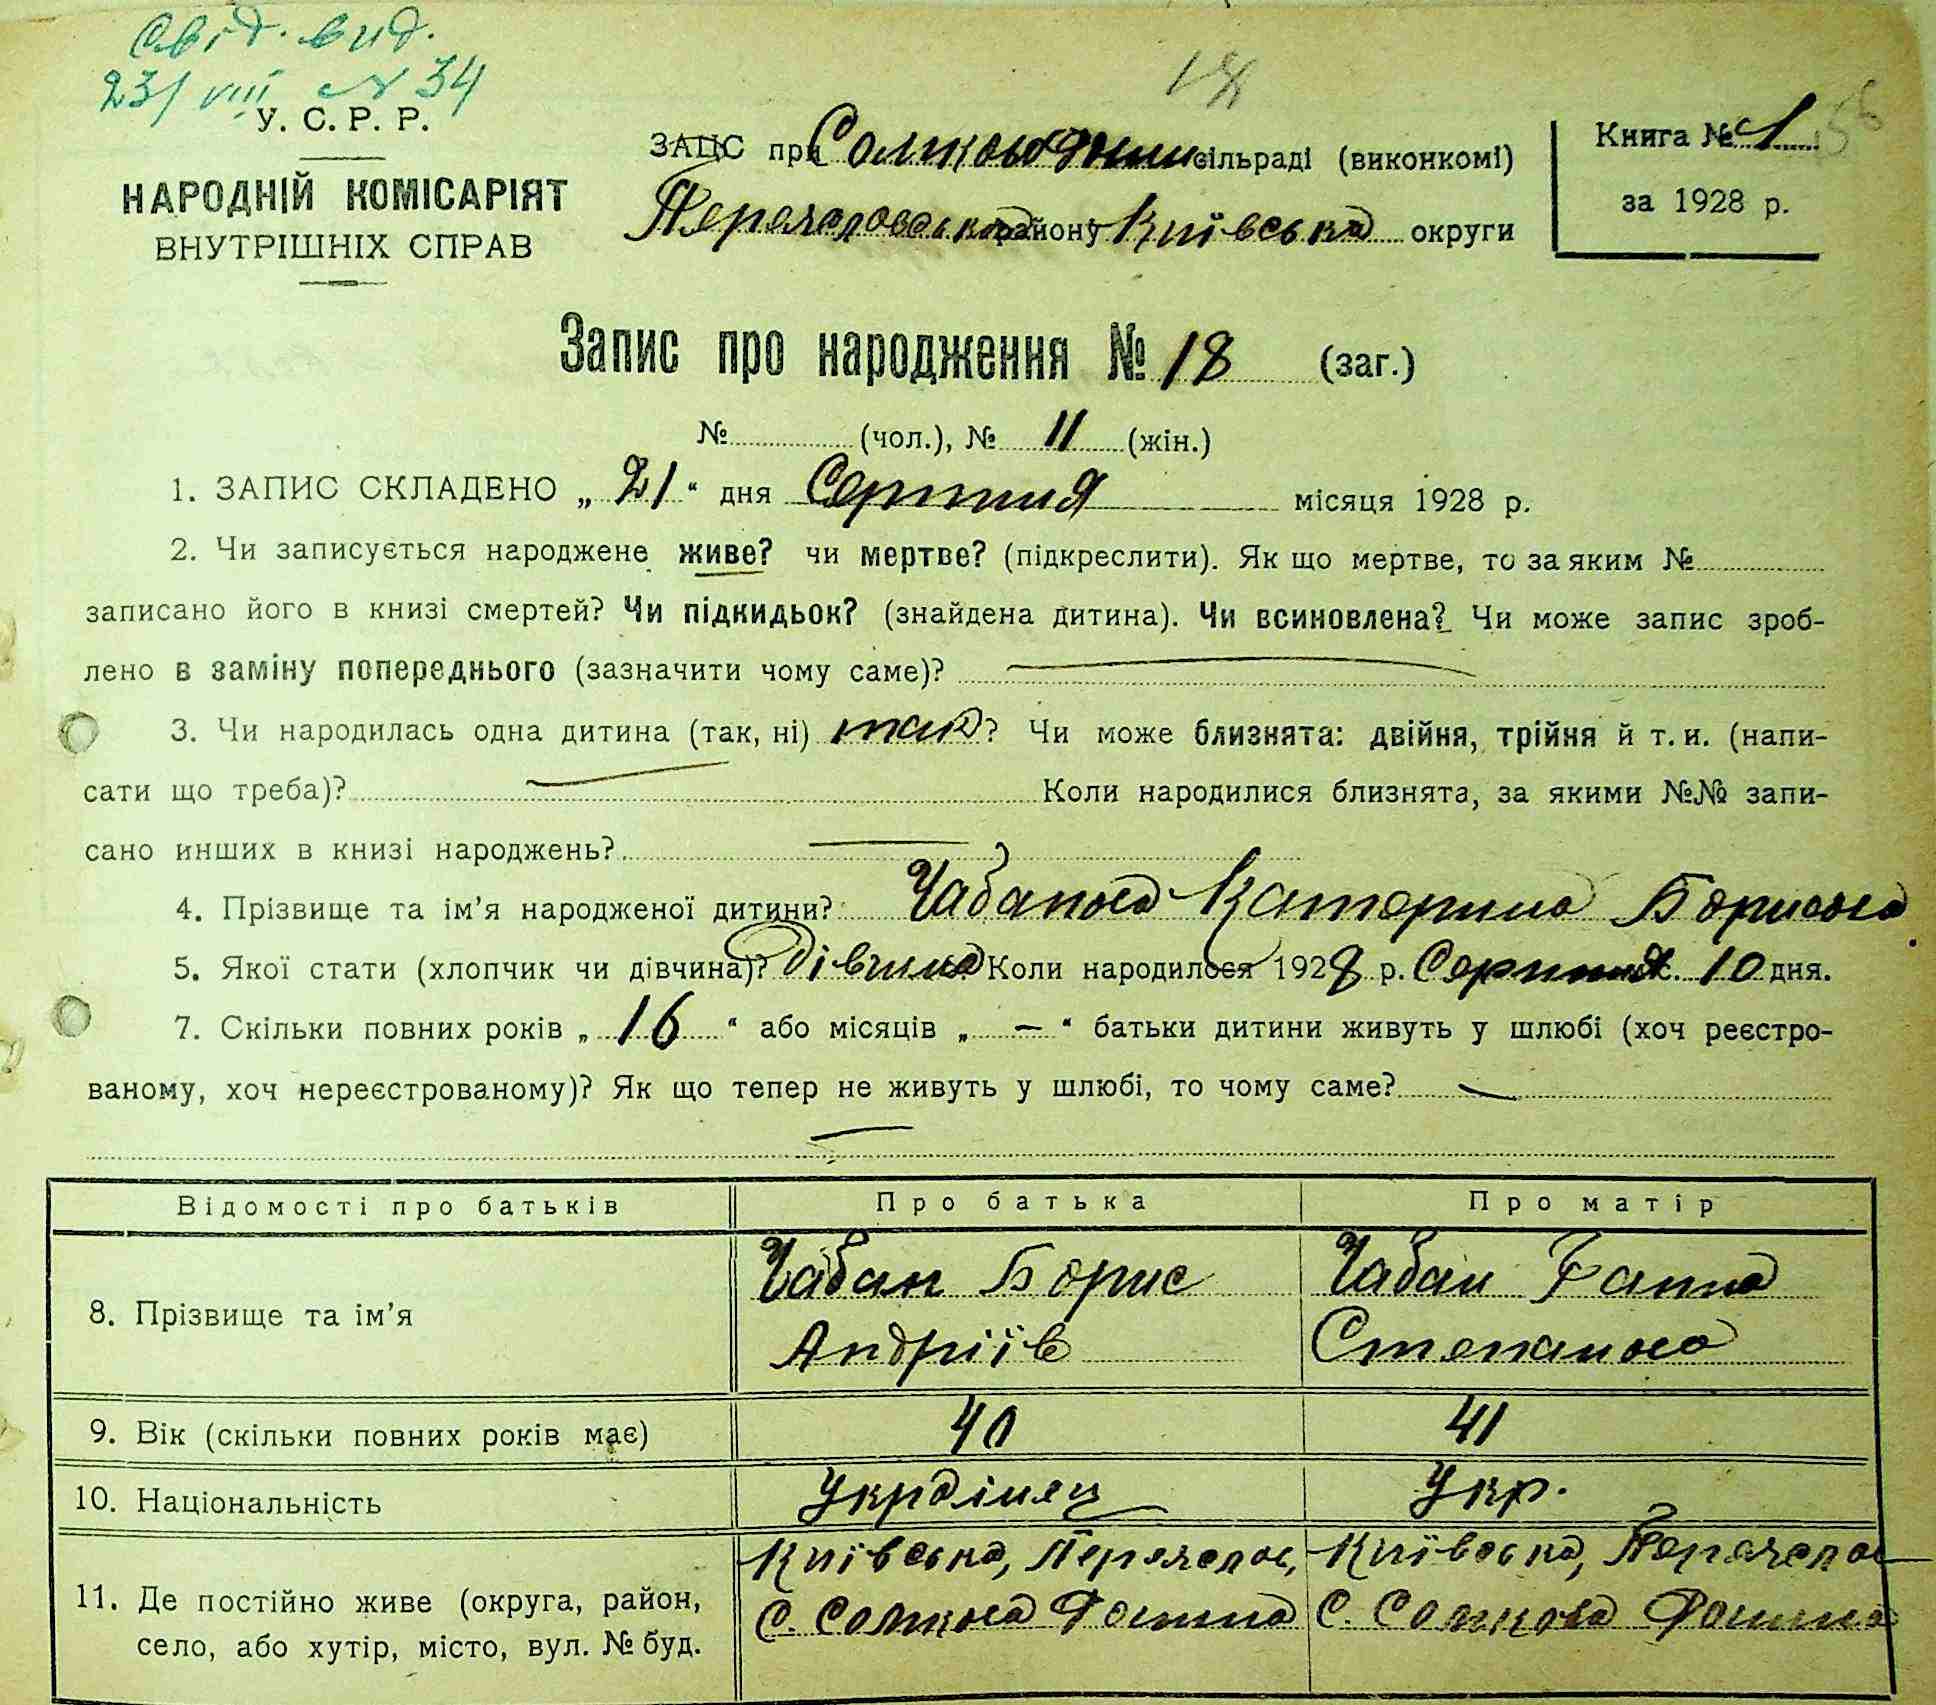 Свід. вид.
23/VIII N 34
У. С. Р. Р.
НАРОДНІЙ КОМІСАРІЯТ
ВНУТРІШНІХ СПРАВ
ЗАЦС при Сомководолин сільраді (виконкомі)
Переяславська району Київська округи
Книга № 1
за 1928 р.
Запис про народження № 18 (заг.)
№ (чол.), № 11 (жін.)
1. ЗАПИС СКЛАДЕНО „ 21 “ дня Серпня місяця 1928 р.
2. Чи записується народжене живе? чи мертве? (підкреслити). Як що мертве, то за яким №
записано його в книзі смертей? Чи підкидьок? (знайдена дитина). Чи всиновлена? Чи може запис зроб-
лено в заміну попереднього (зазначити чому саме)?
3. Чи народилась одна дитина (так, ні) так? Чи може близнята: двійня, трійня й т. и. (напи-
сати що треба)? Коли народилися близнята, за якими №№ запи-
сано инших в книзі народжень?
4. Прізвище та ім’я народженої дитини? Чабанова Катерина Борисова
5. Якої стати (хлопчик чи дівчина)? дівчина Коли народилося 1928 р. Серпня 10 дня.
7. Скільки повних років „ 16 “ або місяців „ — “ батьки дитини живуть у шлюбі (хоч реєстро-
ваному, хоч нереєстрованому)? Як що тепер не живуть у шлюбі, то чому саме?
Відомості про батьків Про батька Про матір
8. Прізвище та ім’я Чабан Борис Андріїв Чабан Ганна Степанова
9. Вік (скільки повних років має) 40 41
10. Національність Українец Укр.
11. Де постійно живе (округа, район, Київська, Переяслов, Київська, Переяслов
село, або хутір, місто, вул. № буд. с. Сомкова Долина с. Сомкова Долина